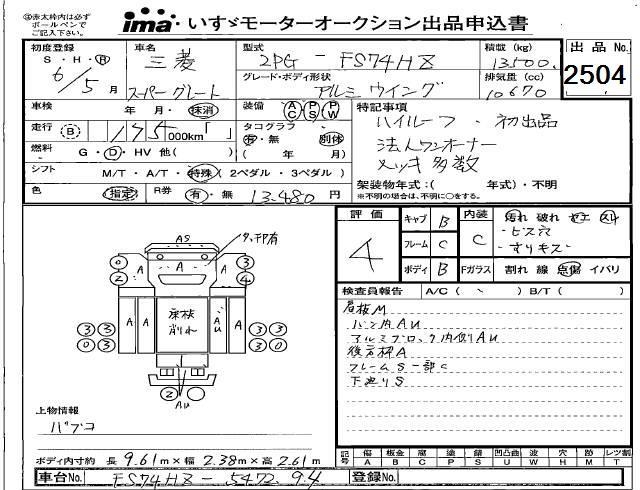 ◎赤太枠内は必ず
ボールペンで
ご記入ください
ima いすゞモーターオークション出品申込書
初度登録 車名 型式 積載(kg) 出品No.
S・H・R 三菱 2PG-FS74HZ 13500 2504
6/5月 スーパーグレート グレード・ボディ形状 アルミウイング 排気量(cc) 10670
車検 年 月・抹消 装備 AC PS PW 特記事項
走行 B 175,000km「 」 タコグラフ 有・無 別体 ハイルーフ・初出品
燃料 G・D・HV 他( ) ( 年 月) 法人ワンオーナー
シフト M/T・A/T・特殊(2ペダル・3ペダル) メッキ多数
色 指定 R券 有・無 13,480円 架装物年式:( 年式)・不明
※不明の場合は、不明に○をする。
評価 4
キャブ B 内装 C 汚れ 破れ ヤニ スレ
フレーム C ・ビス穴
・すりキズ
ボディ B Fガラス 割れ 線 点傷 イバリ
検査員報告 A/C( 、 ) B/T( )
床板M
バン内AU
アルミブロック内側AU
後方枠A
フレームS一部C
下廻りS
AS
タッチP有
0 A A A 3
2 4
A A 床板削れ A U A
3 3 3 3
0 3 3 0
2
AU
上物情報
パブコ
ボディ内寸約 長 9.61m×幅 2.38m×高 2.61m
記号 傷 板金 腐 塗 錆 凹凸曲 波 穴 跡 レツ割
A B C P S U W H M T
車台No. FS74HZ-547294 登録No.